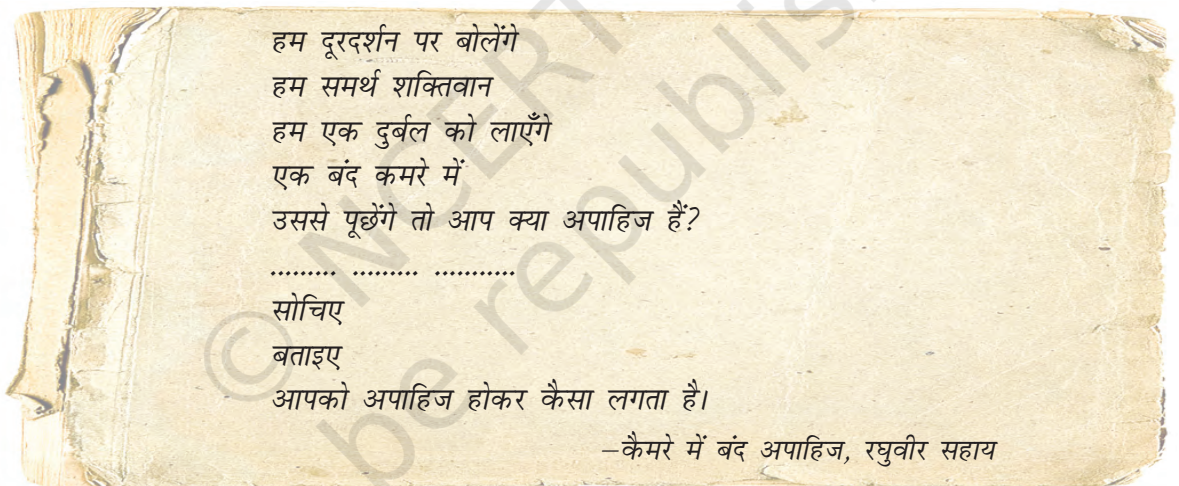 हम दूरदर्शन पर बोलेंगे
हम समर्थ शक्तिवान
हम एक दुर्बल को लाएँगे
एक बंद कमरे में
उससे पूछेंगे तो आप क्या अपाहिज हैं?
.......... ......... ...........
सोचिए
बताइए
आपको अपाहिज होकर कैसा लगता है।
–कैमरे में बंद अपाहिज, रघुवीर सहाय
© NCERT
be republis